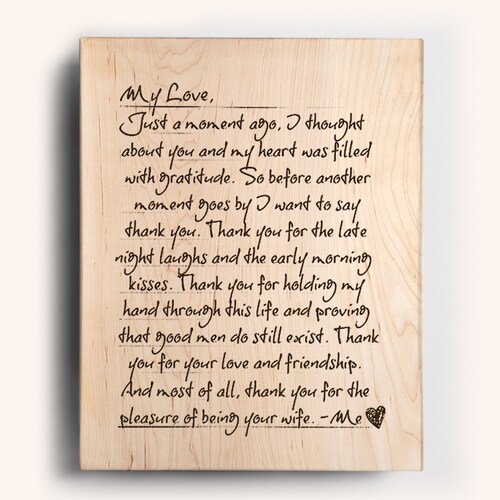 My Love,
Just a moment ago, I thought
about you and my heart was filled
with gratitude. So before another
moment goes by I want to say
thank you. Thank you for the late
night laughs and the early morning
kisses. Thank you for holding my
hand through this life and proving
that good men do still exist. Thank
you for your love and friendship.
And most of all, thank you for the
pleasure of being your wife. -Me